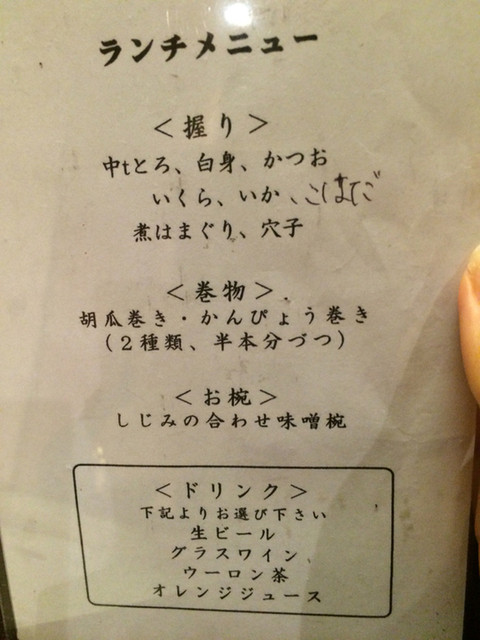 ランチメニュー
＜握り＞
中tとろ、白身、かつお
いくら、いか、こはだ
煮はまぐり、穴子
＜巻物＞.
胡瓜巻き・かんぴょう巻き
(２種類、半本分づつ)
＜お椀＞
しじみの合わせ味噌椀
＜ドリンク＞
下記よりお選び下さい
生ビール
グラスワイン
ウーロン茶
オレンジジュース